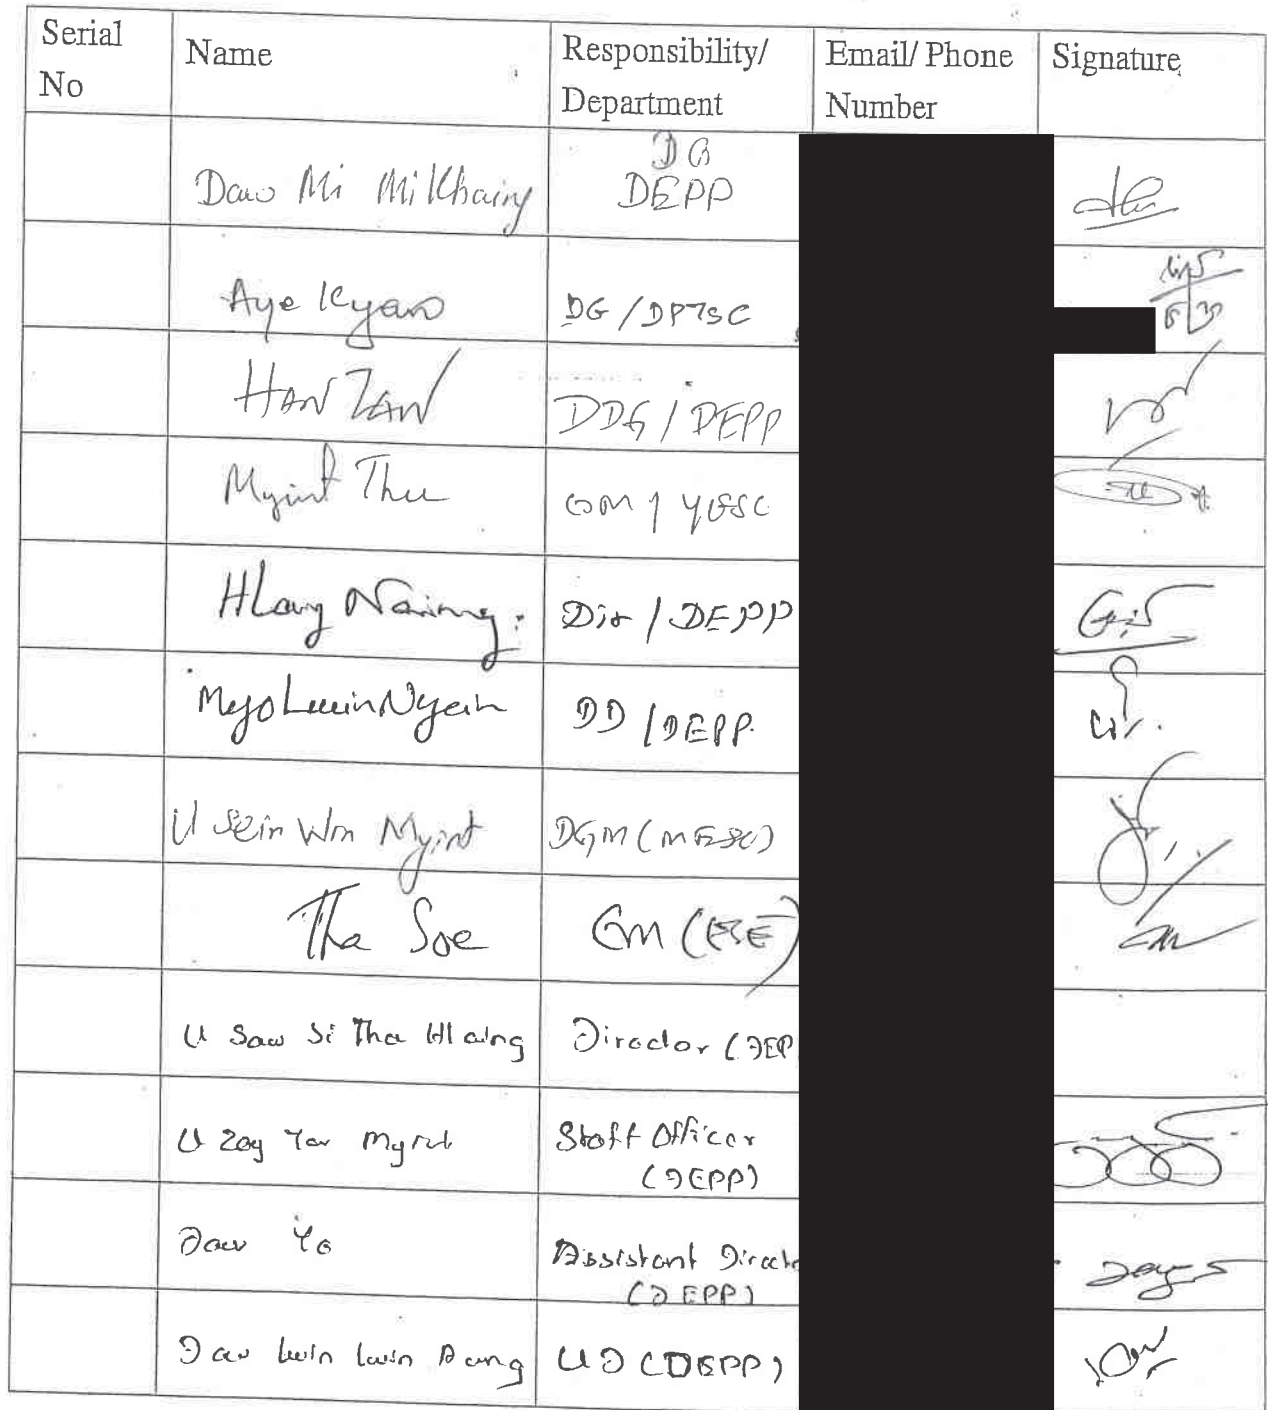 Serial No
Name
Responsibility/ Department
Email/ Phone Number
Signature
Daw Mi Mi Khaing
DG
DEPP
Aye Kyaw
DG / DPTSC
HAN ZAW
DDG / DEPP
Myint Thu
GM / YESC
Hlaing Naing.
Dir / DEPP
Myo Lwin Nyein
DD / DEPP.
U Sein Win Myint
DGM (MESC)
Tha Soe
GM (ESE)
U Saw Si Thu Hlaing
Director (DEP
U Zay Yar Myint
Staff Officer
(DEPP)
Daw
Assistant Directo
(DEPP)
Daw Lwin Lwin Aung
UD (DEPP)